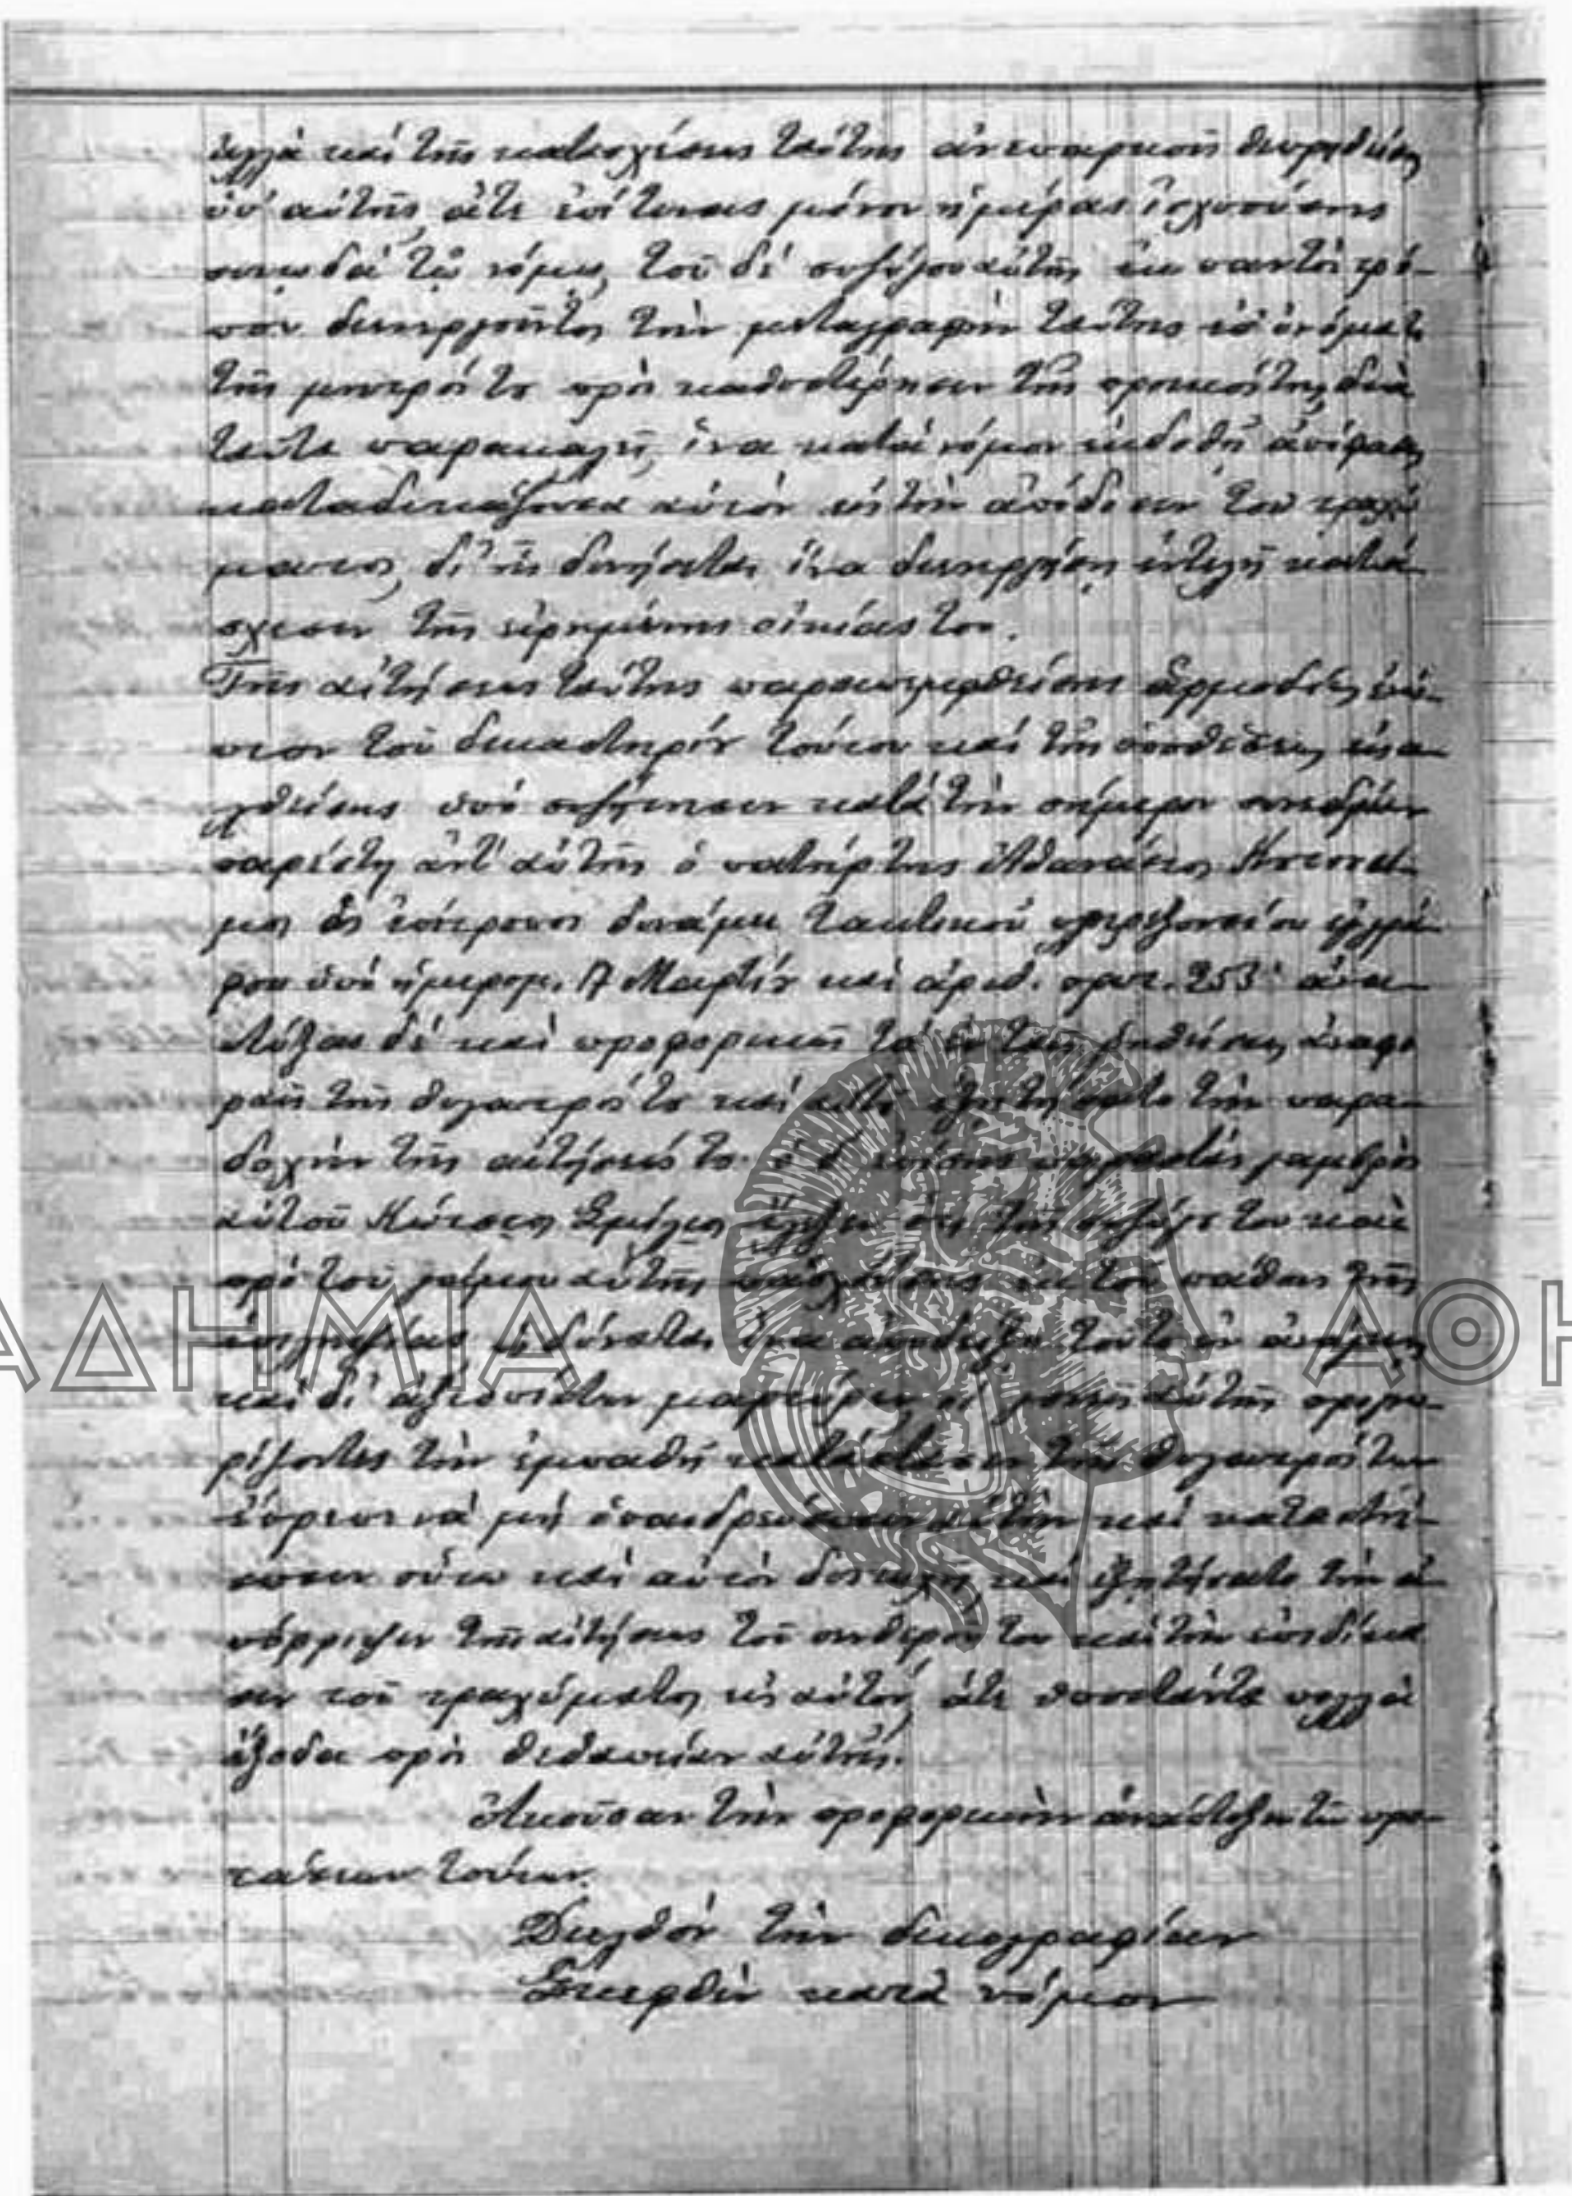 ἀλλὰ καὶ τῆς κατασχέσεως ταύτης ἀνεπαρκοῦς θεωρηθείσης
ὑπ' αὐτῆς, ἅτε ἐπί τινας μόνον ἡμέρας ἰσχυούσης
συνῳδὰ τῷ νόμῳ, τοῦ δὲ συζύγου αὐτῆς ἐκ παντὸς τρό-
που διενεργοῦντος τὴν μεταγραφὴν ταύτης ἐπ' ὀνόματι
τῆς μητρός το πρὸς καθυστέρησιν τῆς προικός της, διὰ
ταῦτα παρακαλεῖ, ἵνα κατὰ νόμον ἐκδοθῇ ἀπόφασις
καταδικάζουσα αὐτὸν εἰς τὴν ἀπόδοσιν τοῦ τραχώ
ματος, δι' ἧς δυνήσεται ἵνα διενεργήσῃ ἐντελῆ κατά-
σχεσιν τῆς εἰρημένης οἰκίας του.
Τῆς αἰτήσεως ταύτης παραπεμφθείσης ἁρμοδίως ἐνώ-
πιον τοῦ δικαστηρίου τούτου καὶ τῆς ὑποθέσεως εἰσα-
χθείσης ὑπὸ συζήτησιν κατὰ τὴν σήμερον συνεδρίαν
παρέστη ἀντ' αὐτῆς ὁ πατήρ της Ἀθανάσιος
ὡς ἐπίτροπος δυνάμει τακτικοῦ πληρεξουσίου ἐγγρά-
φου ὑπὸ ἡμερομ. 17 Μαρτίου καὶ ἀριθ. πρωτ. 253· ἀνα-
πτύξας δὲ καὶ προφορικῶς τὰ ἐν ταῖς ῥηθείσαις ἀναφο
ραῖς τῆς θυγατρός το καὶ ἐξῃτήσατο τὴν παρα-
δοχὴν τῆς αἰτήσεώς το· ὁ δ' ἐπίσης παραστὰς γαμβρὸς
αὐτοῦ Κώτσιος ἔλεξεν ὅτι τῆς συζύγο του καὶ
πρὸ τοῦ γάμου αὐτῆς πασχούσης ἐκ τοῦ πάθους τῆς
ἐπιληψίας, ὡς δύναται ἵνα ἀποδείξῃ τοῦτο ἐν ἀνάγκῃ
καὶ δι' ἀξιοπίστων μαρτύρων, οἱ γονεῖς αὐτῆς προγνω-
ρίζοντες τὴν ἐμπαθῆ κατάστασιν τῆς θυγατρός των
ὤφειλον νὰ μὴ ὑπανδρεύσωσιν αὐτὴν καὶ καταστή-
σωσιν οὕτω καὶ αὐτὸν δυστυχῆ, καὶ ἐξῃτήσατο τὴν ἀ-
πόρριψιν τῆς αἰτήσεως τοῦ πενθεροῦ του καὶ τὴν ἐπιδίκα
σιν τοῦ τραχώματος εἰς αὐτόν, ἅτε ὑποστάντα πολλὰ
ἔξοδα πρὸς θεραπείαν αὐτῆς.
Ἀκοῦσαν τὴν προφορικὴν ἀνάπτυξιν τῶν προ-
τάσεων τούτων.
Διελθὸν τὴν δικογραφίαν
Σκεφθὲν κατὰ νόμον